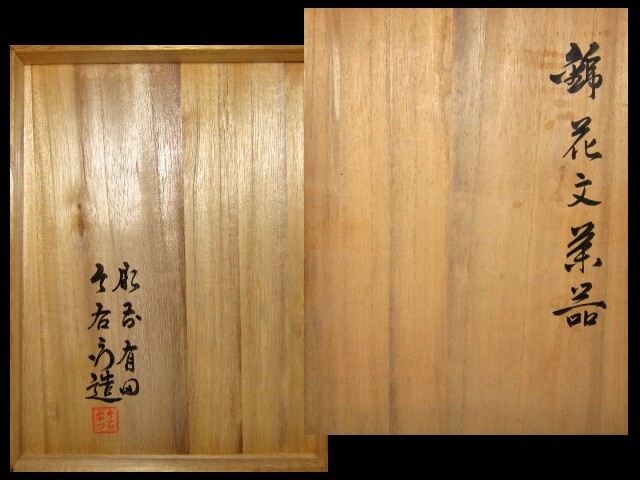 錦花文菓器
肥前有田
右門造